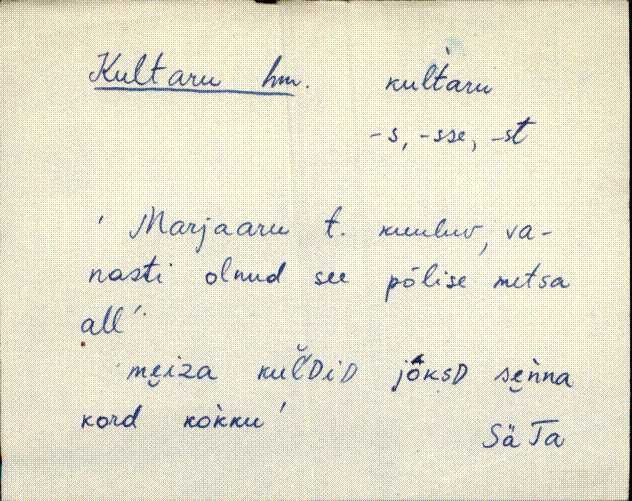 Kultaru hm. kul̀taru
-s, -sse, -st
' Marjaaru t. kuuluv, va-
nasti olnud see põlise metsa
all'
'me̮iza kuĺ̆DiD jõ̀ksD se̮ǹna
kord kòkku'
Sä Ta